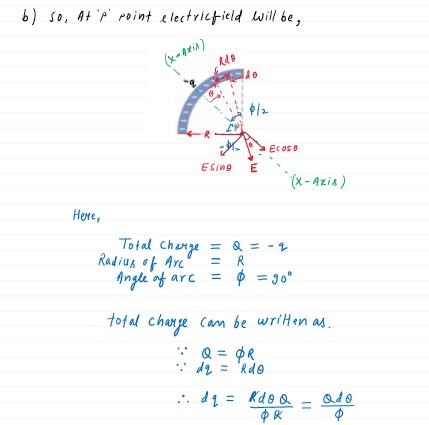 b) So, At 'P' point electricfield will be,
(X-Axis)
Rdθ
-q
θ
dθ
ϕ/2
R
P
-ϕ/2
θ
Ecosθ
Esinθ
E
(X-Axis)
Here,
Total Charge = Q = -q
Radius of Arc = R
Angle of arc = ϕ = 90°
total charge can be written as.
∵ Q = ϕR
∵ dq = Rdθ
∴ dq = RdθQ / ϕR = Qdθ / ϕ